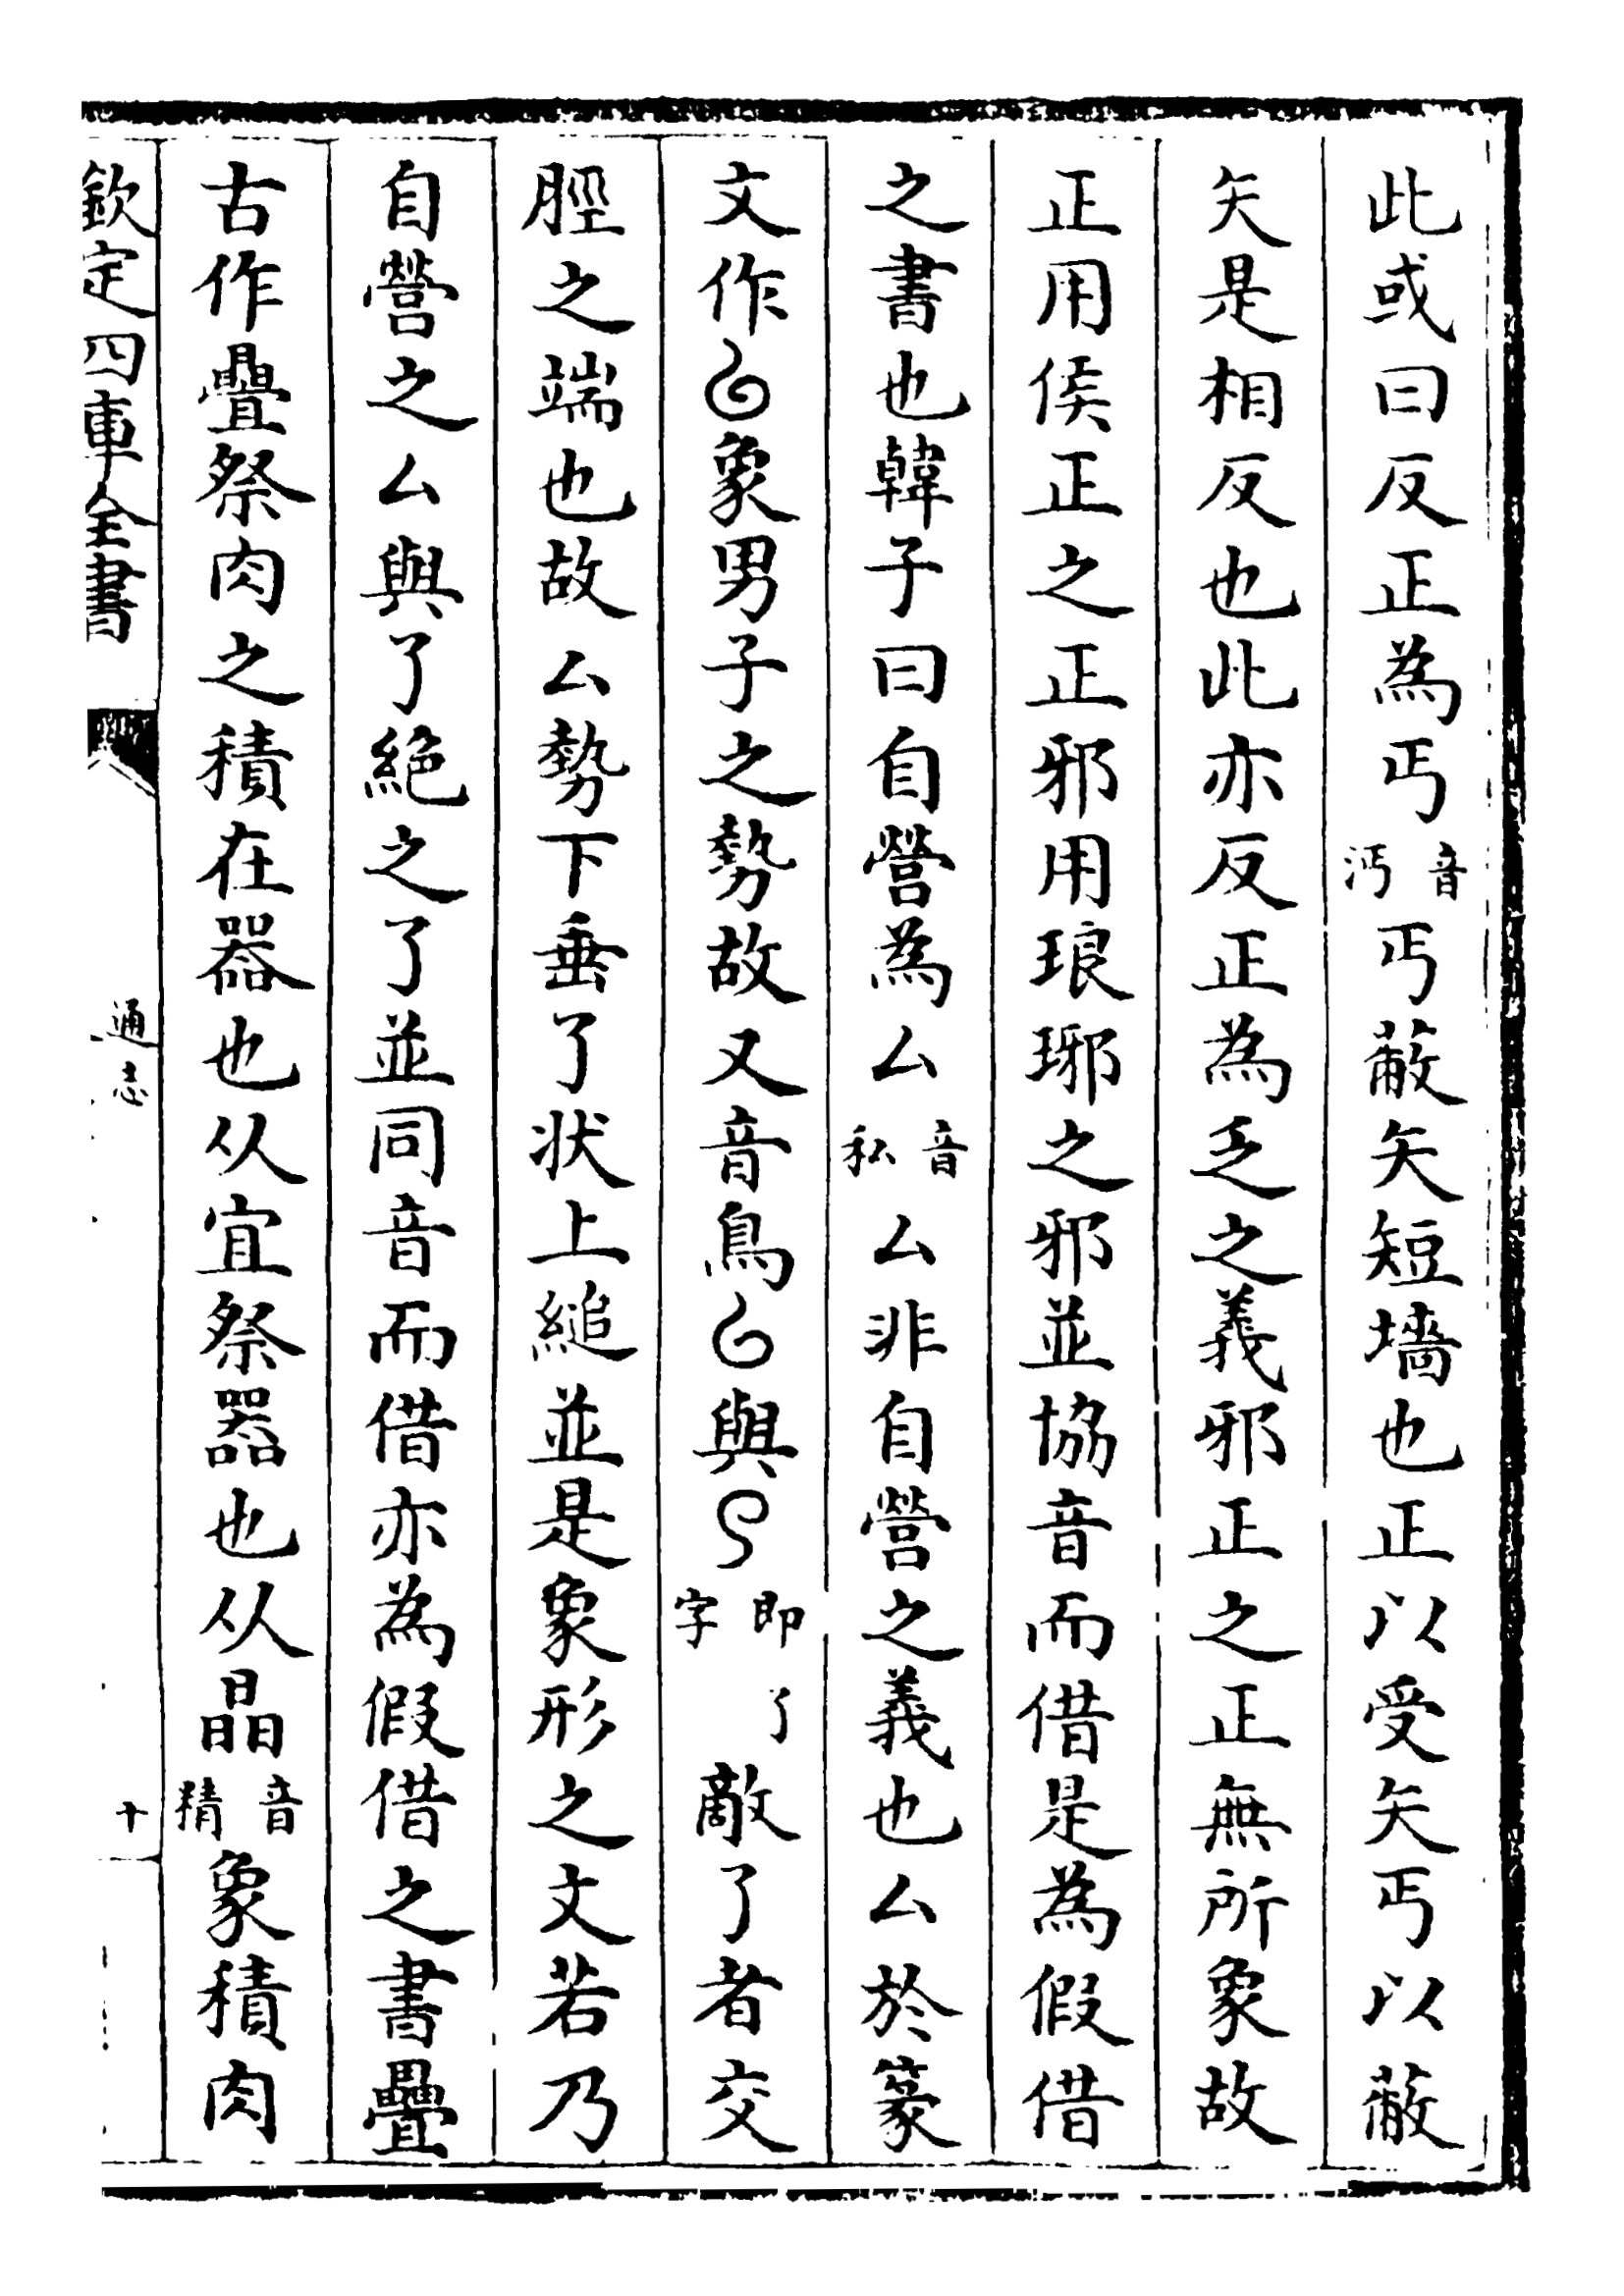 此或曰反正為丐音沔丐蔽矢短墻也正以受矢丐以蔽
矢是相反也此亦反正為乏之義邪正之正無所象故
正用侯正之正邪用琅琊之邪並協音而借是為假借
之書也韓子曰自營為厶音私厶非自營之義也厶於篆
文作象男子之勢故又音鳥與即了字敵了者交
脛之端也故厶勢下垂了状上縋並是象形之文若乃
自營之厶與了絶之了並同音而借亦為假借之書疊
古作疊祭肉之積在器也从宜祭器也从晶音精象積肉
欽定四庫全書
通志
十